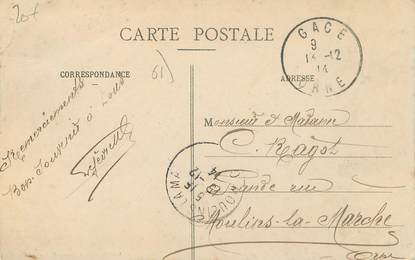 20f
CARTE POSTALE
CORRESPONDANCE
61)
ADRESSE
GACE
9
13-12
14
ORNE
Remerciements
Bon Souvenir à tous
Monsieur et Madame
C. Ragot
Grande rue
Moulins-la-Marche
Orne